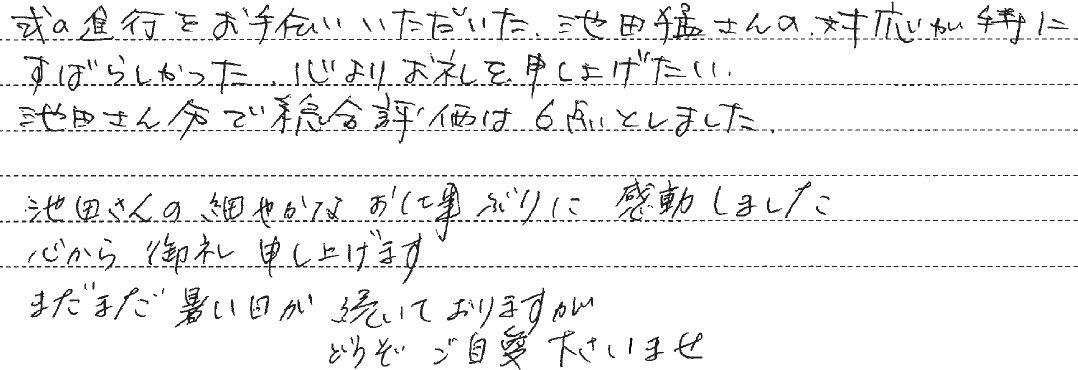 式の進行をお手伝いいただいた、池田猛さんの対応が特に
すばらしかった、心よりお礼を申し上げたい。
池田さん分で総合評価は6点としました。
池田さんの細やかなお仕事ぶりに感動しました
心から御礼申し上げます
まだまだ暑い日が続いておりますが
どうぞご自愛下さいませ